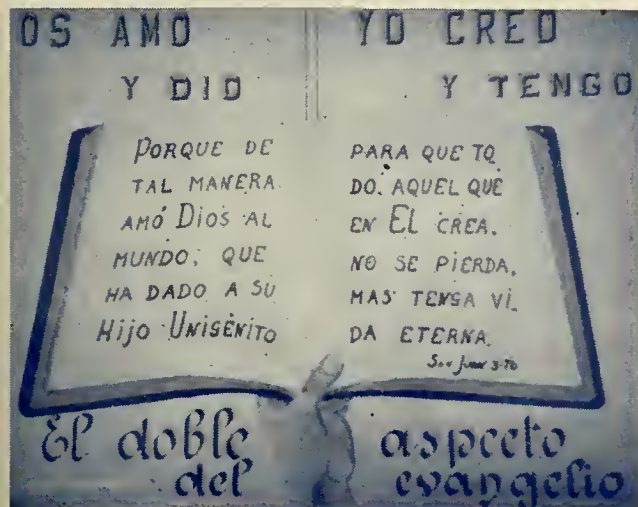 OS AMO
Y DIO
PORQUE DE
TAL MANERA
AMÓ DIOS AL
MUNDO; QUE
HA DADO A SU
HIJO UNIGÉNITO
YO CREO
Y TENGO
PARA QUE TO
DO. AQUEL QUE
EN EL CREA.
NO SE PIERDA,
MAS TENGA VI_
DA ETERNA.
San Juan 3-16
El doble aspecto
del evangelio